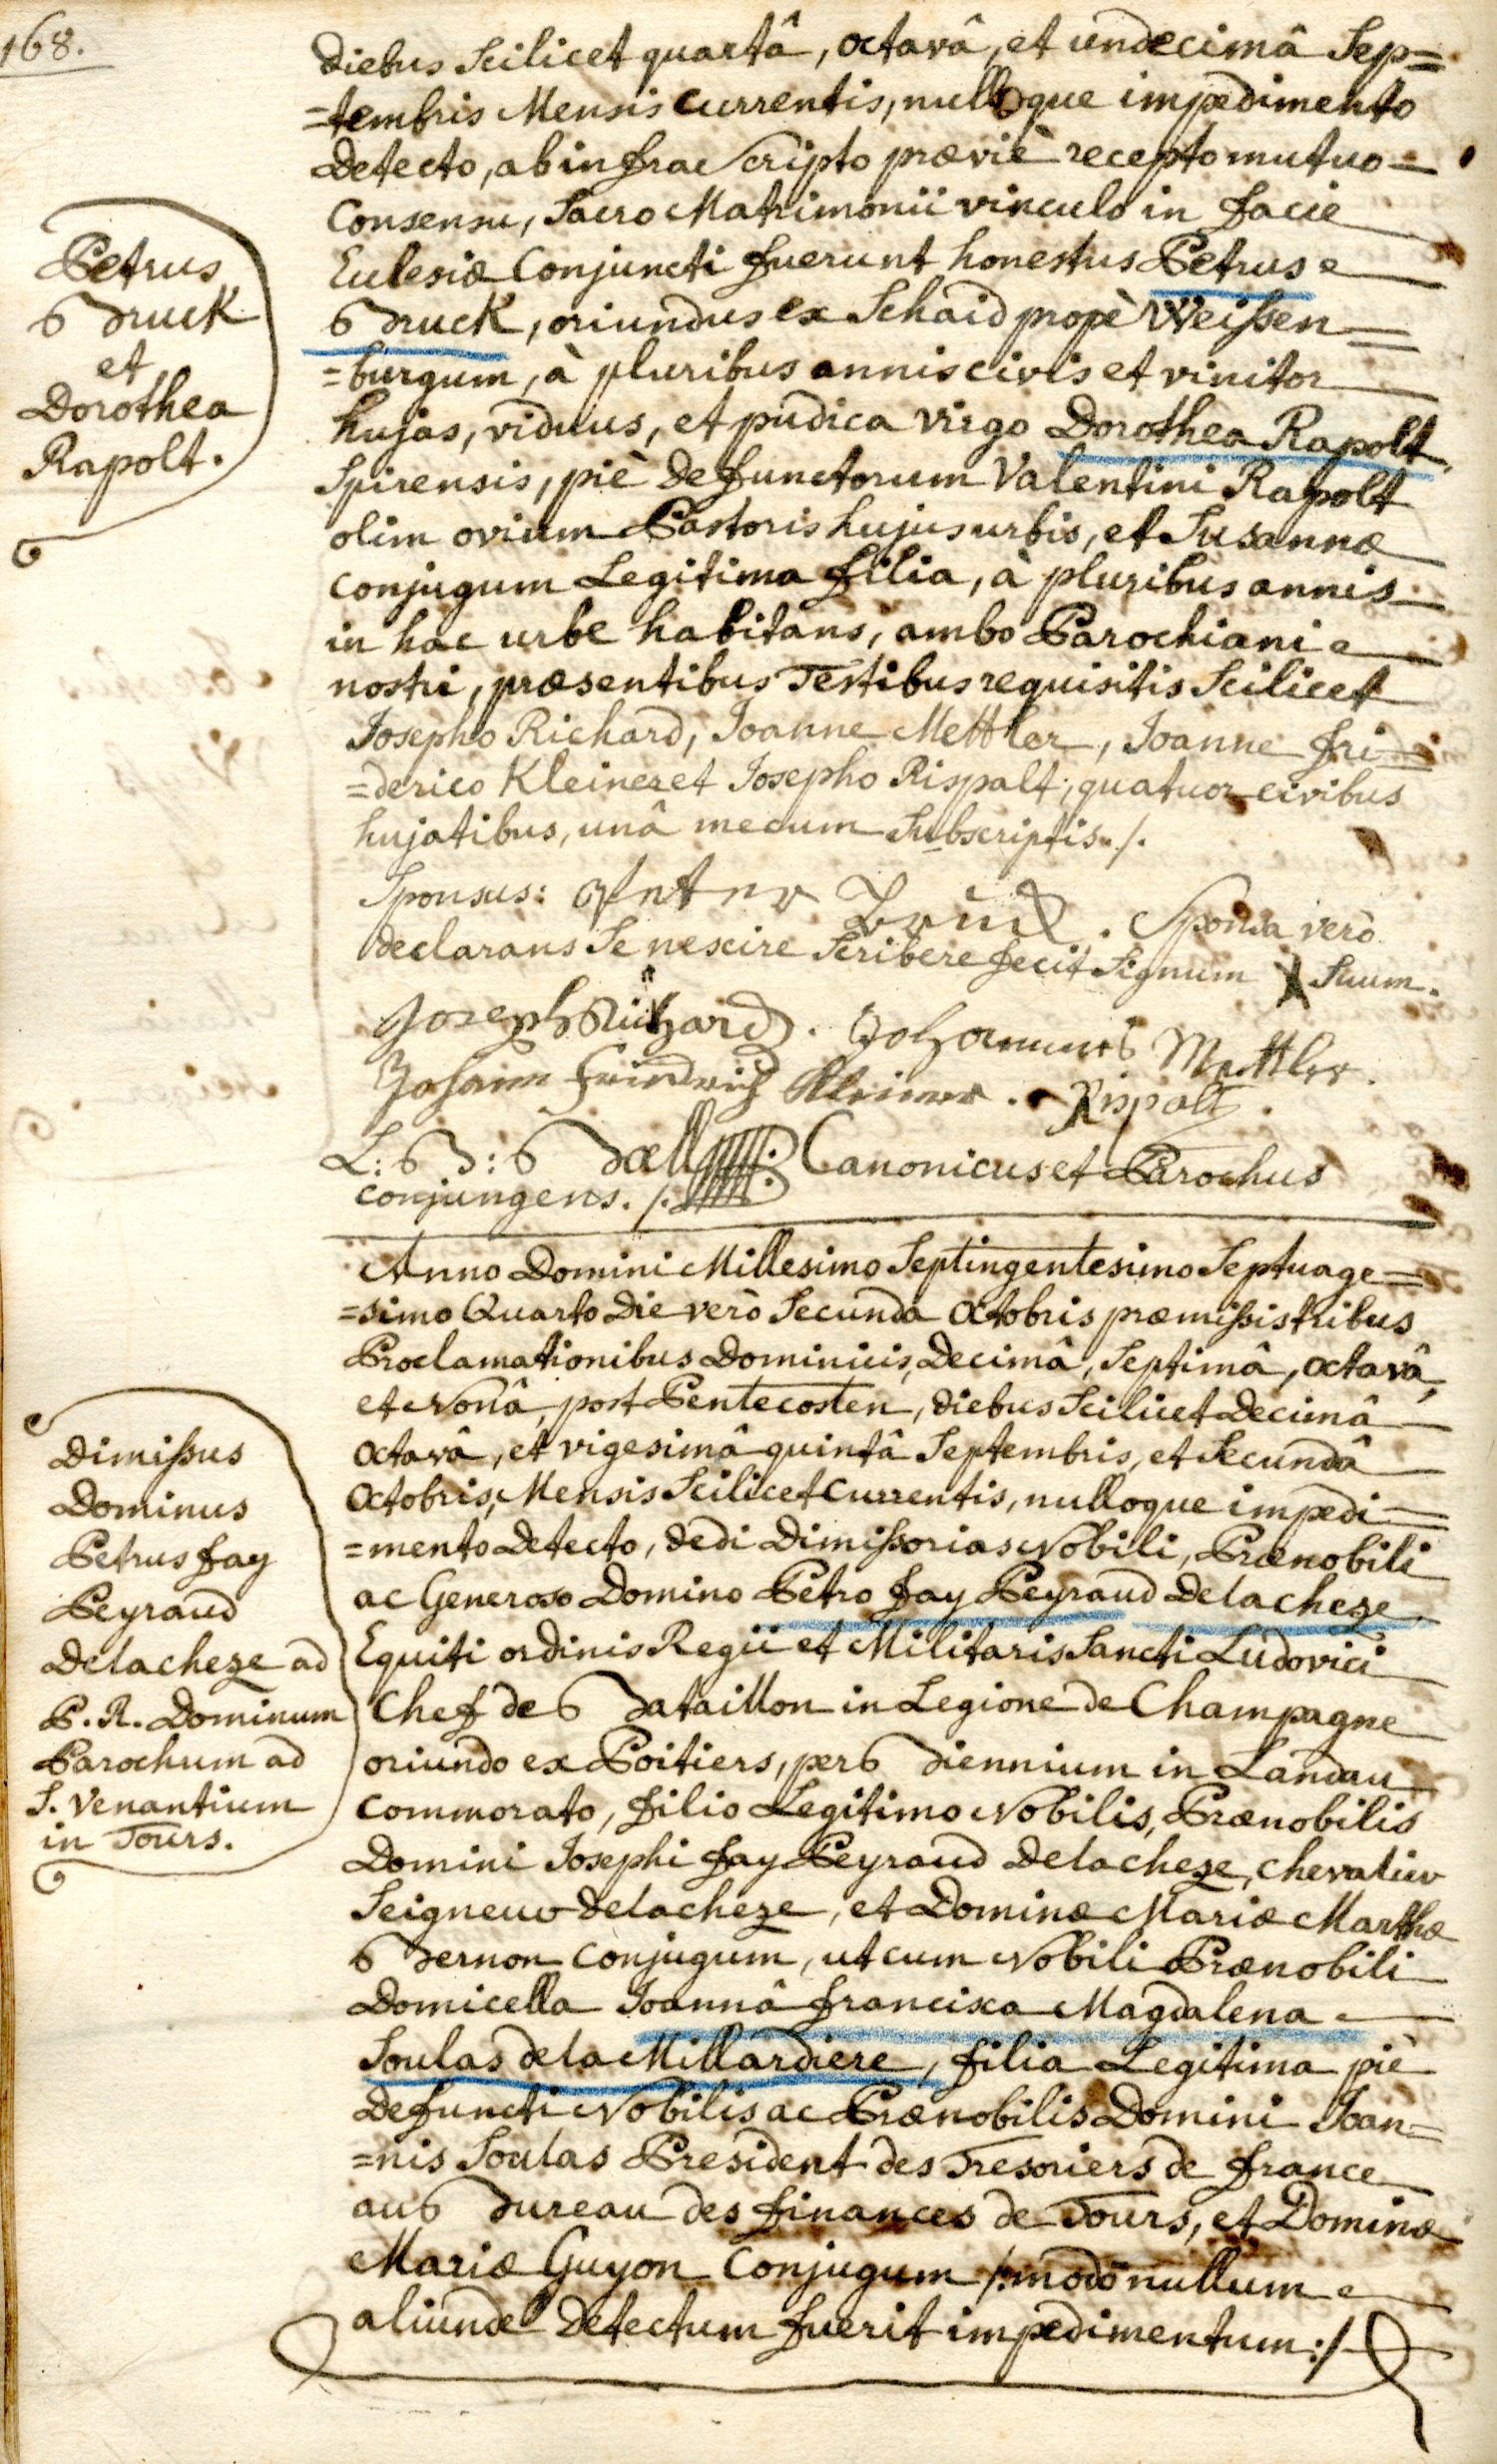 168.
diebus Scilicet quartâ, octavâ, et undecimâ Sep=
=tembris Mensis Currentis, nulloque impedimento
Detecto, ab infra Scripto præviè recepto mutuo
Consensu, Sacro Matrimonii vinculo in facie
Eulesiæ Conjuncti fuerunt honestus Petrus
Bruck, oriundus ex Schaid propè Weissen=
=burgum, à pluribus annis civis et vinitor
hujas, viduus, et pudica virgo Dorothea Rapolt
Spirensis, piè defunctorum Valentini Rapolt
olim ovium Pastoris hujus urbis, et Susannæ
conjugum Legitima filia, à pluribus annis
in hac urbe habitans, ambo Parochiani
nostri, præsentibus Testibus requisitis Scilicet
Josepho Richard, Joanne Mettler, Joanne fri=
=derico Kleiner et Josepho Rispalt, quatuor civibus
hujatibus, unâ mecum Subscriptis ./.
Petrus
Bruck
et
Dorothea
Rapolt.
Sponsus: Peter Bruck. Sponsa verò
declarans Se nescire Scribere fecit Signum X Suum.
Joseph Richard. Johannes Mettler.
Johann Friedrich Kleiner. Rispalt.
L: B: Ball Canonicus et Parochus
conjungens. /.
Anno Domini Millesimo Septingentesimo Septuage=
=simo Quarto Die verò Secunda Octobris præmissis tribus
Proclamationibus Dominicis, Decimâ, Septimâ, octavâ,
et Nonâ, post Pentecosten, diebus Scilicet Decimâ
octavâ, et vigesimâ quintâ Septembris, et Secundâ
Octobris, Mensis Scilicet Currentis, nulloque impedi=
=mento Detecto, dedi Dimissorias Nobili, Prænobili
ac Generoso Domino Petro fay Peyraud Delacheze
Equiti ordinis Regii et Militaris Sancti Ludovici
Chef de Bataillon in Legione de Champagne
oriundo ex Poitiers, per Biennium in Landau
commorato, filio Legitimo Nobilis, Prænobilis
Domini Josephi fay Peyraud Delacheze, chevalier
Seigneur Delacheze, et Dominæ Mariæ Marthæ
Bernon Conjugum, ut cum Nobili Prænobili
Domicella Joannâ francisca Magdalena
Soulas de la Millardiere, filia Legitima piè
Defuncti Nobilis ac Prænobilis Domini Joan=
=nis Soulas President des Tresoriers de france
au Bureau des finances de Tours, et Dominæ
Mariæ Guyon Conjugum /: modò nullum
aliundè Detectum fuerit impedimentum :/
Dimissus
Dominus
Petrus fay
Peyraud
Delacheze ad
P. R. Dominum
Parochum ad
S. Venantium
in Tours.